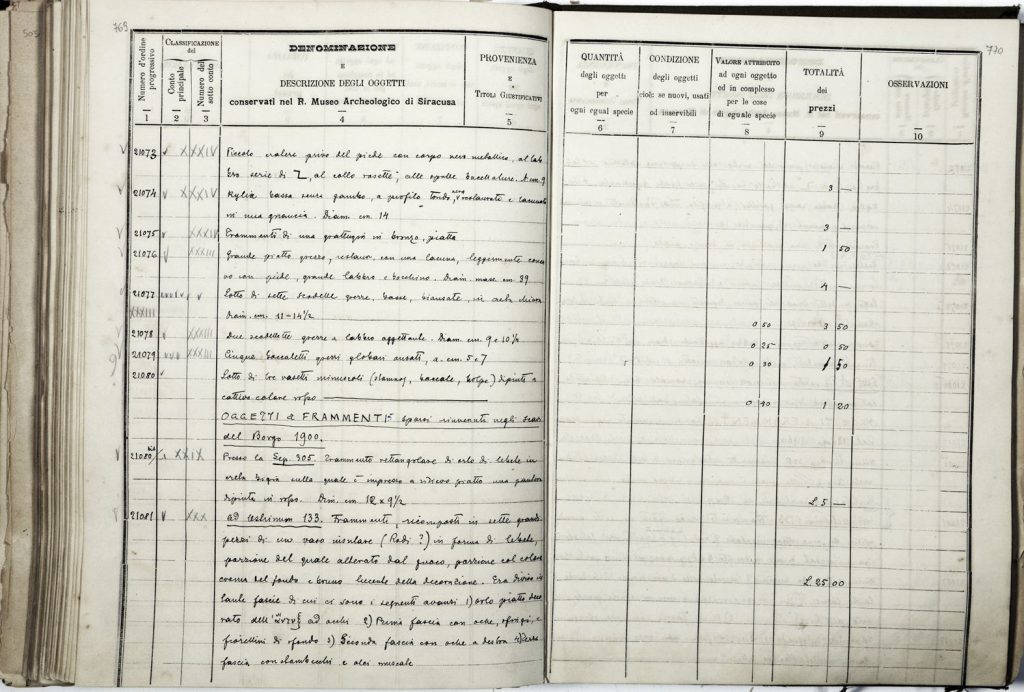 769
505
Numero d'ordine progressivo
CLASSIFICAZIONE del
Conto principale
Numero del sotto conto
DENOMINAZIONE
E
DESCRIZIONE DEGLI OGGETTI
conservati nel R. Museo Archeologico di Siracusa
PROVENIENZA
E
TITOLI GIUSTIFICATIVI
1 2 3 4 5
21073 V XXXIV Piccolo cratere privo del piede con corpo nero metallico, al lab-
bro serie di Z, al collo rosette, alle spalle baccellature. A. cm. 9
21074 V XXXIV Kylix bassa senza gambo, a profilo tondo, restaurata e
in una grancia. Diam. cm. 14
21075 V XXXIV Frammenti di una grattugia in bronzo, piatta
21076 V XXXIII Grande piatto grezzo, restaur. con una lacuna, leggermente conca-
vo con piede, grande labbro e becchino. Diam. mass. cm 39
21077 V Lotto di sette scodelle grezze, basse, biansate, in creta chiara
XXXIII Diam. cm. 11-14½
21078 V XXXIII Due scodellette grezze a labbro aggettante. Diam. cm. 9 e 10½
21079 XXXIII Cinque boccaletti grezzi globari ansati, a. cm. 5 e 7
21080 V Lotto di tre vasetti minuscoli (stamnos, boccale, bolpe) dipinti a
cattivo colore rosso
OGGETTI e FRAMMENTI sparsi rinvenuti negli scavi
del Borgo 1900.
21080 bis XXIX Presso la Sep. 305. Frammento rettangolare di orlo di lebete in
creta bigia sulla quale è impresso a rilievo piatto una
dipinta in rosso. Dim. cm 12 x 9½
21081 V XXX ad ustrinum 133. Frammenti, ricomposti in sette grandi
pezzi di un vaso insulare (Rodi?) in forma di lebete,
porzione del quale alterato dal fuoco, porzione col colore
crema del fondo e bruno lucente della decorazione. Era diviso in
tante fascie di cui ci sono i seguenti avanzi 1) orlo piatto deco-
rato dell' ad archi 2) Prima fascia con oche, sfingi, e
fiorellini di sfondo 3) Seconda fascia con oche a destra 4) Terza
fascia con stambecchi e alci muscale
770
QUANTITÀ
degli oggetti
per
ogni egual specie
CONDIZIONE
degli oggetti
cioè: se nuovi, usati
od inservibili
VALORE ATTRIBUITO
ad ogni oggetto
od in complesso
per le cose
di eguale specie
TOTALITÀ
dei
prezzi
OSSERVAZIONI
6 7 8 9 10
3 —
3 —
1 50
4 —
0 50 3 50
0 25 0 50
0 30 1 50
0 40 1 20
L. 5 —
L. 25 00